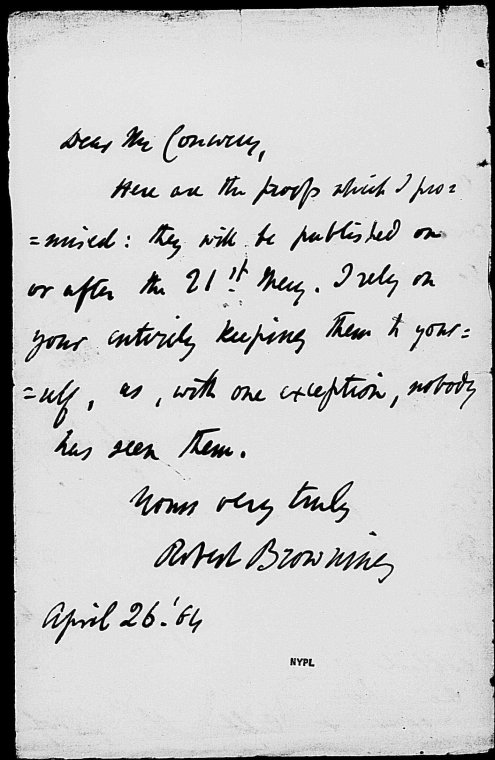 Dear Mr Conway,
Here are the proofs which I pro=
=mised: they will be published on
or after the 21st May. I rely on
your entirely keeping them to your=
=self, as, with one exception, nobody
has seen them.
Yours very truly
Robert Browning
April 26. '64
NYPL